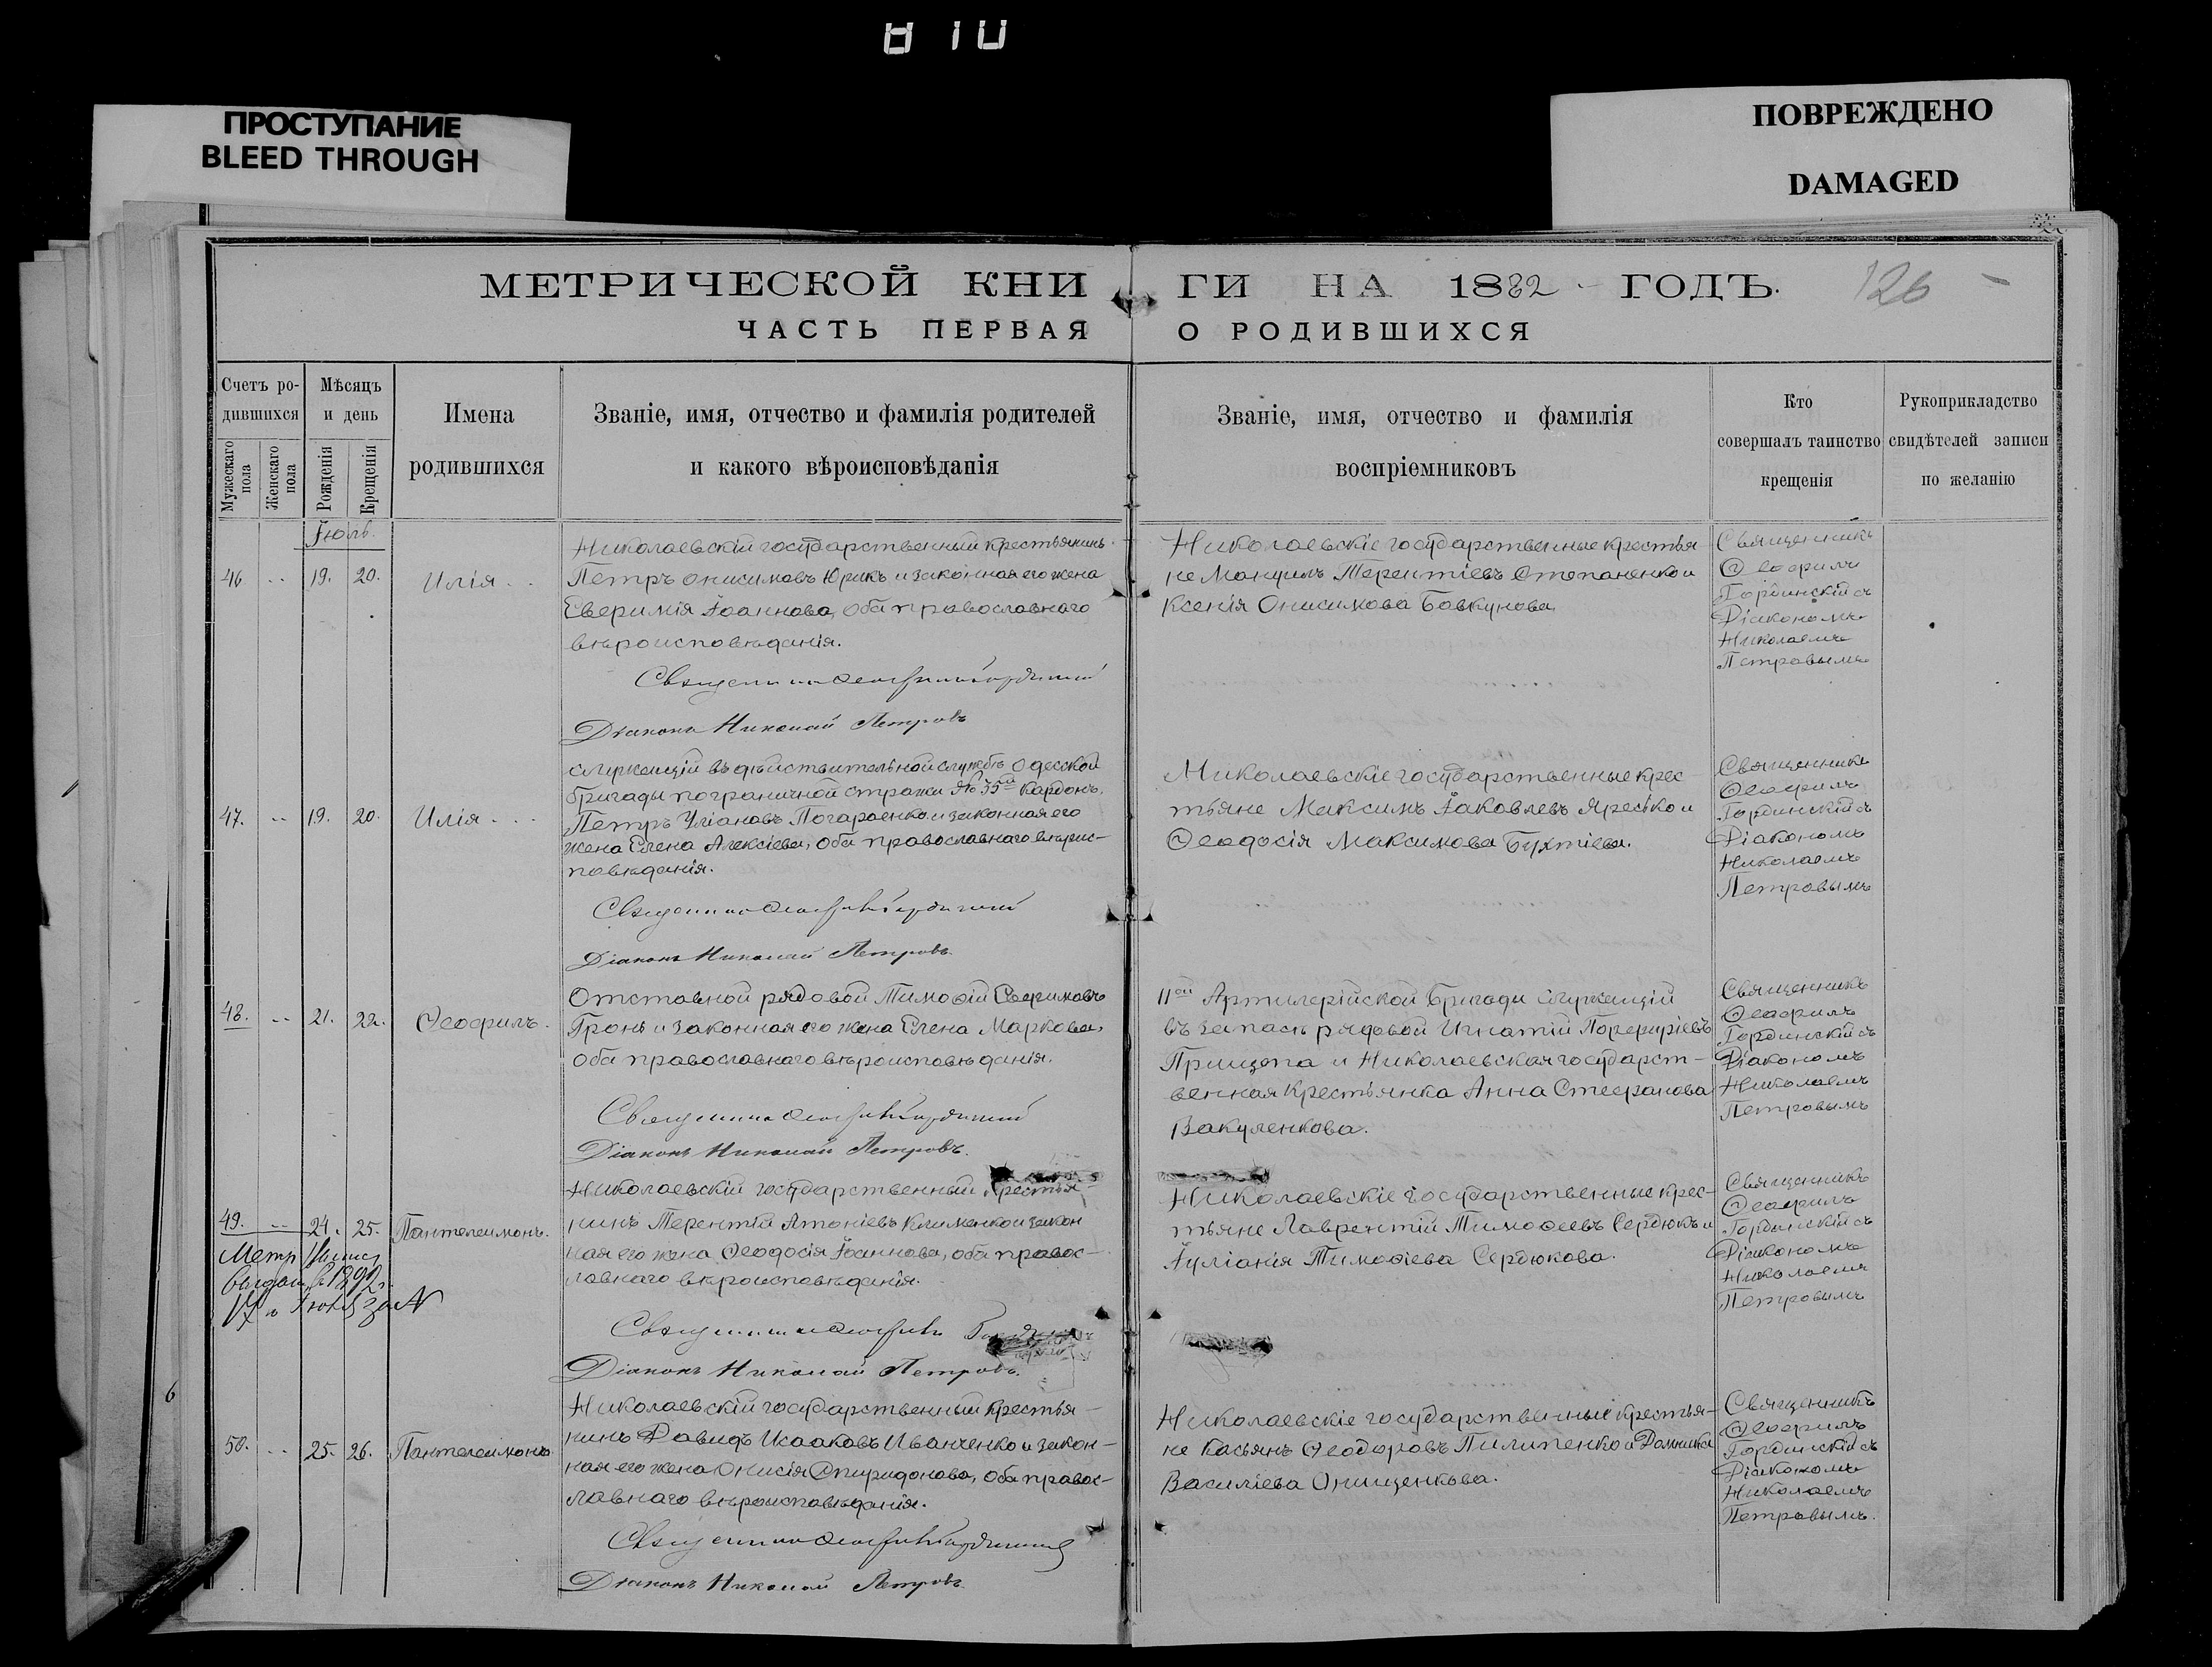 810
ПРОСТУПАНИЕ
BLEED THROUGH
ПОВРЕЖДЕНО
DAMAGED
МЕТРИЧЕСКОЙ КНИ ГИ НА 1882 ГОДЪ.
126
ЧАСТЬ ПЕРВАЯ О РОДИВШИХСЯ
Счетъ ро-
дившихся
Мужескаго пола
Женскаго пола
Мѣсяцъ
и день
Рожденія
Крещенія
Имена
родившихся
Званіе, имя, отчество и фамилія родителей
и какого вѣроисповѣданія
Званіе, имя, отчество и фамилія
воспріемниковъ
Кто
совершалъ таинство
крещенія
Рукоприкладство
свидѣтелей записи
по желанію
Іюль.
46 19. 20. Илія
Николаевскій государственный крестьянинъ
Петръ Онисимовъ Юрикъ и законная его жена
Евфимія Іоаннова, оба православнаго
вѣроисповѣданія.
Священникъ Ѳеофилъ Гординскій
Діаконъ Николай Петровъ
Николаевскіе государственные крестья
не Мануилъ Терентіевъ Степаненко и
Ксенія Онисимова Бовкунова
Священникъ
Ѳеофилъ
Гординскій съ
Діакономъ
Николаемъ
Петровымъ
47. 19. 20. Илія
Служащій въ дѣйствительной службѣ Одесской
бригады пограничной стражи № 35й Кардонъ,
Петръ Уліановъ и законная его
жена Елена Алексіева, оба православнаго вѣроис-
повѣданія.
Священникъ Ѳеофилъ Гординскій
Діаконъ Николай Петровъ
Николаевскіе государственные крес-
тьяне Максимъ Іаковлевъ Яресько и
Ѳеодосія Максимова Бухтіева.
Священникъ
Ѳеофилъ
Гординскій съ
Діакономъ
Николаемъ
Петровымъ
48. 21. 22. Ѳеофилъ.
Отставной рядовой Тимоѳій Евфимовъ
Гронь и законная его жена Елена Маркова,
оба православнаго вѣроисповѣданія.
Священникъ Ѳеофилъ Гординскій
Діаконъ Николай Петровъ.
11ой Артилерійской Бригады служащій
въ запасѣ рядовой Игнатій Порфиріевъ
Прищепа и Николаевская государст-
венная крестьянка Анна Стефанова
Вакуленкова.
Священникъ
Ѳеофилъ
Гординскій съ
Діакономъ
Николаемъ
Петровымъ
49. 24. 25. Пантелеимонъ.
Николаевскій государственный крестья-
нинъ Терентій Антоніевъ Клименко и закон
ная его жена Ѳеодосія Іоаннова, оба правос-
лавнаго вѣроисповѣданія.
Священникъ Ѳеофилъ
Діаконъ Николай Петровъ.
Николаевскіе государственные крес-
тьяне Лаврентій Тимоѳеевъ Сердюкъ и
Іуліанія Тимоѳіева Сердюкова.
Священникъ
Ѳеофилъ
Гординскій съ
Діакономъ
Николаемъ
Петровымъ
50. 25. 26. Пантелеимонъ.
Николаевскій государственный крестья-
нинъ Давидъ Исааковъ Иванченко и закон-
ная его жена Онисія Спиридонова, оба правос-
лавнаго вѣроисповѣданія.
Священникъ Ѳеофилъ Гординскій
Діаконъ Николай Петровъ.
Николаевскіе государственные крестья-
не Касьянъ Ѳеодоровъ Пилипенко и Домника
Василіева Онищенкова.
Священникъ
Ѳеофилъ
Гординскій съ
Діакономъ
Николаемъ
Петровымъ.
6